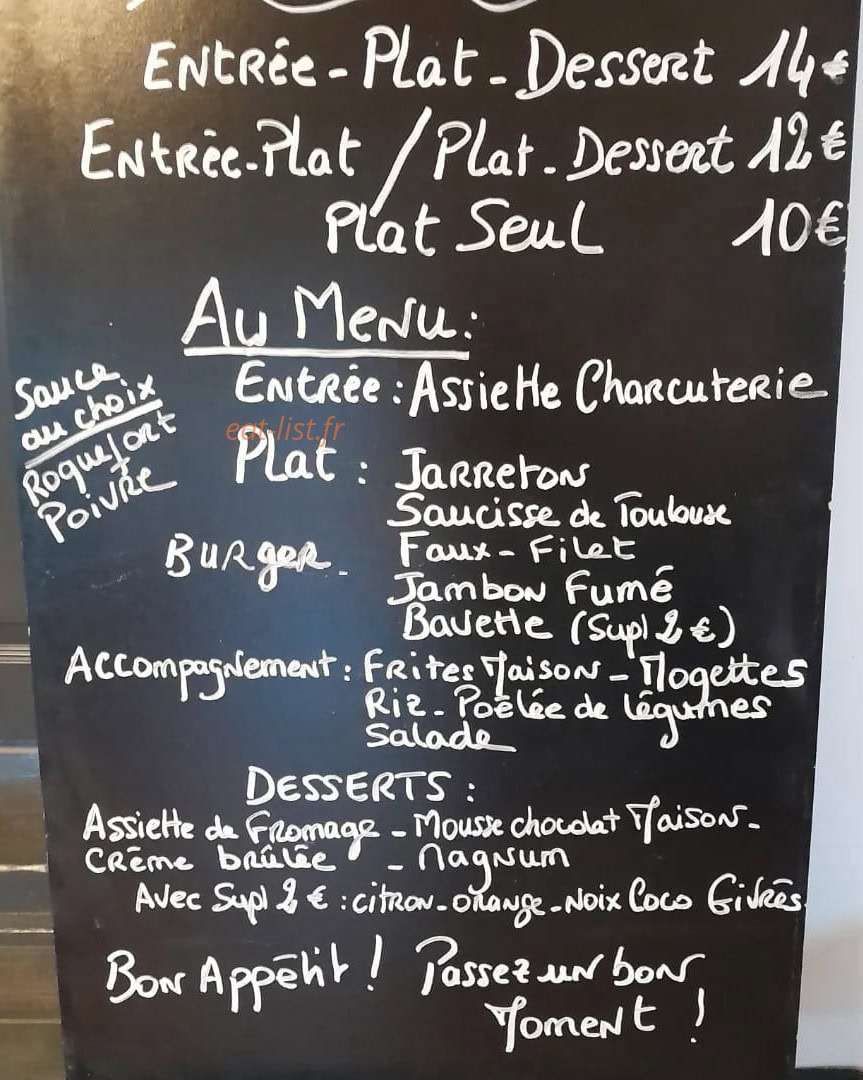 Entrée - Plat - Dessert 14€
Entrée-Plat / Plat - Dessert 12€
Plat Seul 10€
Au Menu:
Entrée : Assiette Charcuterie
Sauce
au choix
Roquefort
+
Poivre
eat-list.fr
Plat : Jarreton
Saucisse de Toulouse
Burger - Faux - Filet
Jambon Fumé
Bavette (Supl 2 €)
Accompagnement : Frites Maison - Mogettes
Riz - Poêlée de légumes
Salade
DESSERTS :
Assiette de Fromage - Mousse chocolat Maison -
Crème brûlée - Magnum
Avec Supl 2 € : citron - orange - Noix Coco Givrés.
Bon Appétit ! Passez un bon
Moment !